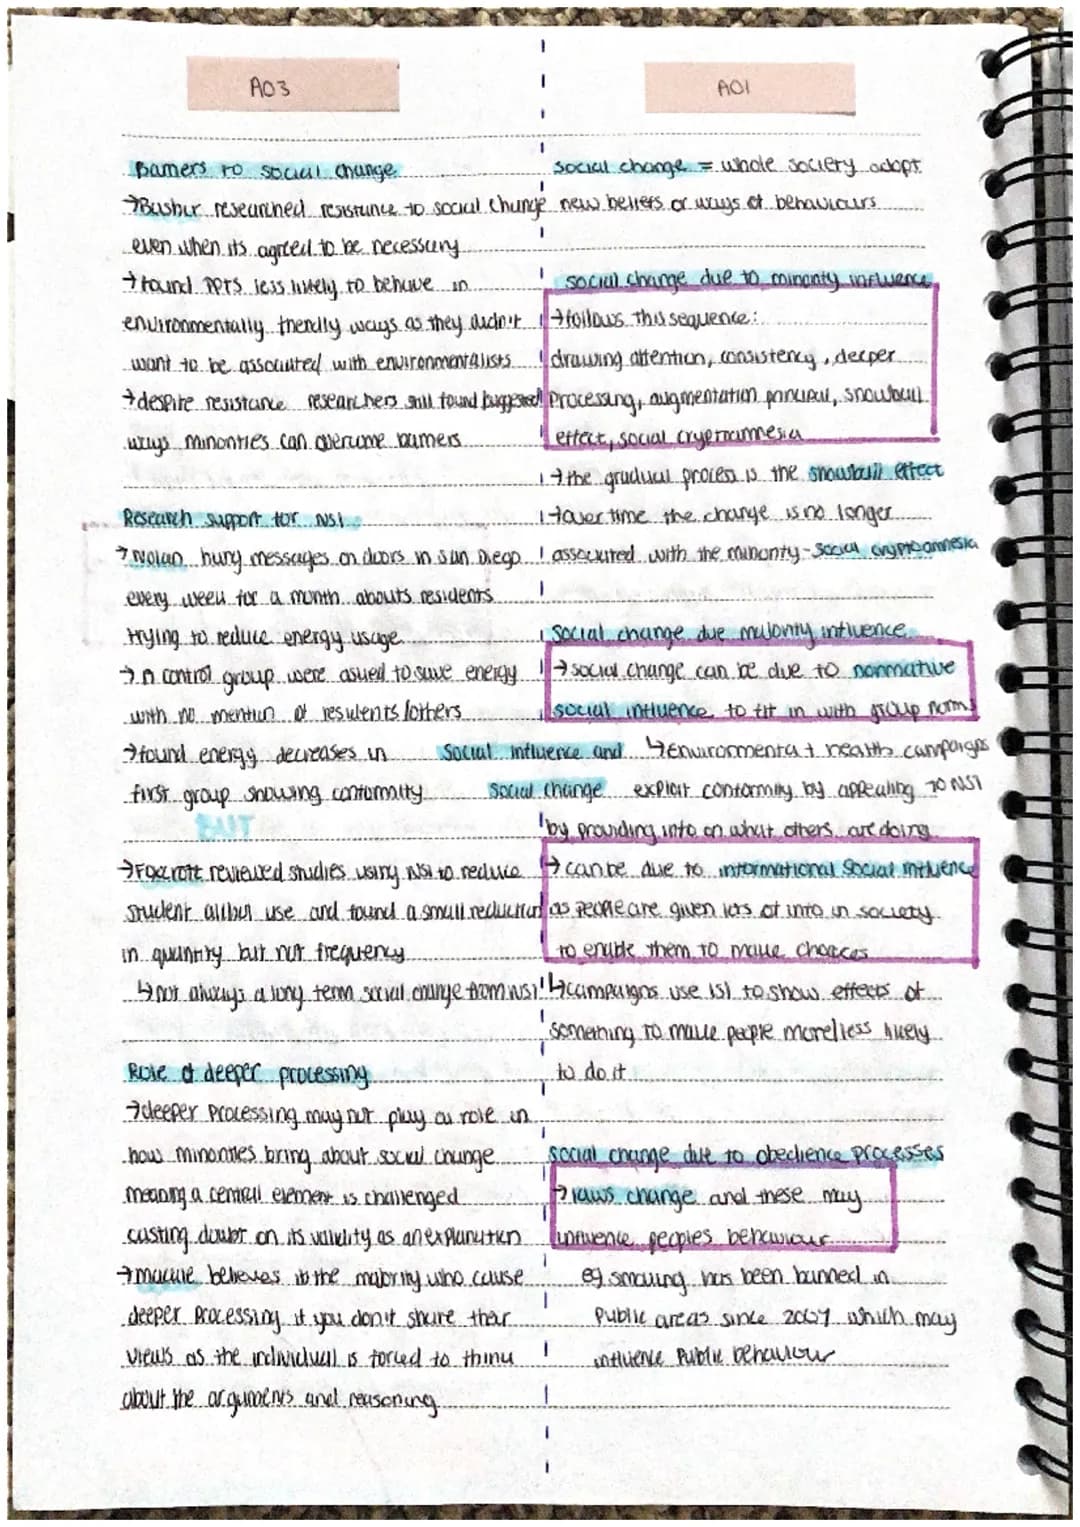 AO3
Barriers to social change
→Bashir researched resistance to social change
even when its agreed to be necessary
→found PPTS less likely to behave in
environmentally friendly ways as they didn't
want to be associated with environmentalists
→despite resistance researchers still found suggested
ways minorities can overcome barriers
Research support for NSI
→Nolan hung messages on doors in San Diego
every week for a month abouts residents
trying to reduce energy usage
→A control group were asked to save energy
with no mention of residents/others
→found energy decreases in
first group showing conformity
BUT
→Foxcroft reviewed studies using NSI to reduce
student alchol use and found a small reduction
in quantity but not frequency
↳not always a long term social change from NSI
Role of deeper processing
→deeper processing may not play a role in
how minorities bring about social change
meaning a central element is challenged
casting doubt on its validity as an explanation
→mackie believes its the majority who cause
deeper processing if you don't share their
views as the individual is forced to think
about the arguments and reasoning
Social influence and
Social change
AO1
social change = whole society adopt
new beliefs or ways of behaviours
social change due to minority influence
→follows this sequence:
drawing attention, consistency, deeper
processing, augmentation principal, snowball
effect, social cryptomnesia
→the gradual process is the snowball effect
→over time the change is no longer
associated with the minority-social cryptoamnesia
Social change due majority influence
→social change can be due to normative
social influence to fit in with group norms
↳Environmental + health campaigns
exploit conformity by appealing to NSI
by providing info on what others are doing
→can be due to informational social influence
as people are given lots of info in society
to enable them to make choices
↳campaigns use ISI to show effects of
something to make people more/less likely
to do it
social change due to obedience processes
→laws change and these may
influence peoples behaviour
eg smoking has been banned in
public areas since 2007 which may
influence public behaviour